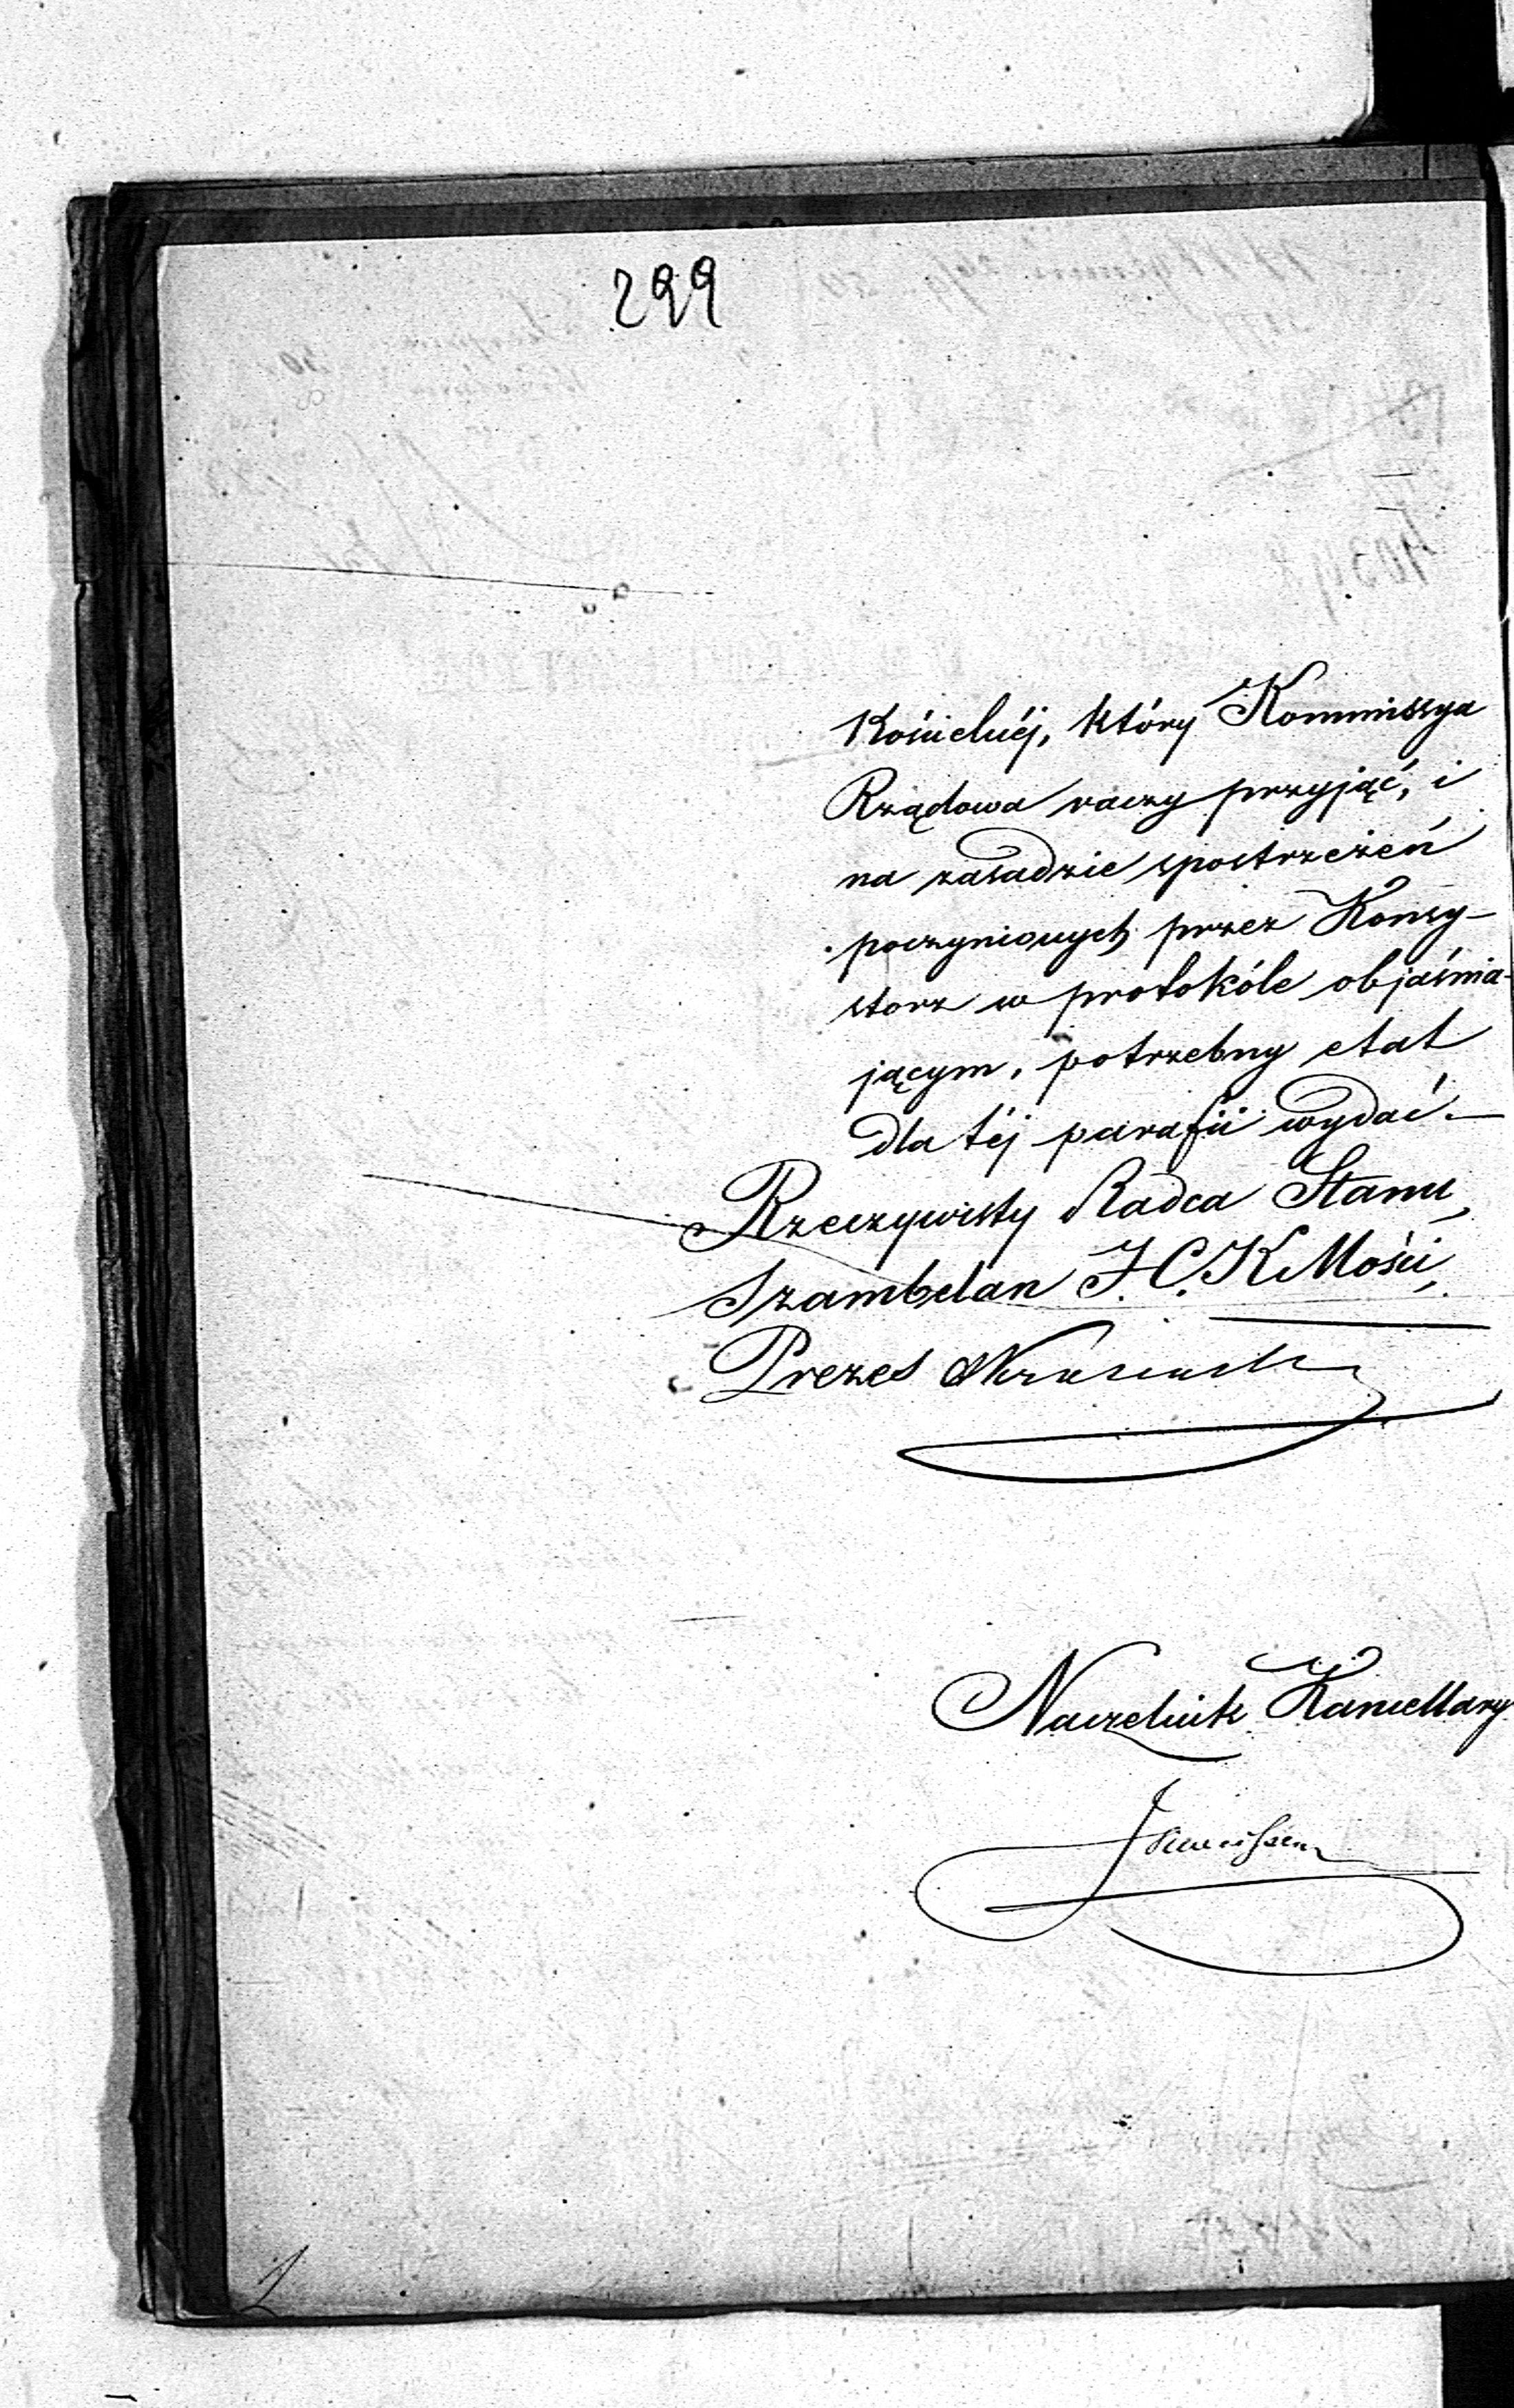 299
Kościelnéj, który Kommissya
Rządowa raczy przyjąć, i
na zasadzie spostrzeżeń
poczynionych przez Konsy-
storz w protokóle objaśnia-
jącym, potrzebny etat
dla téj parafii wydać.—
Rzeczywisty Radca Stanu,
Szambelan J. C. K Mości,
Prezes
Naczelnik Kancellary